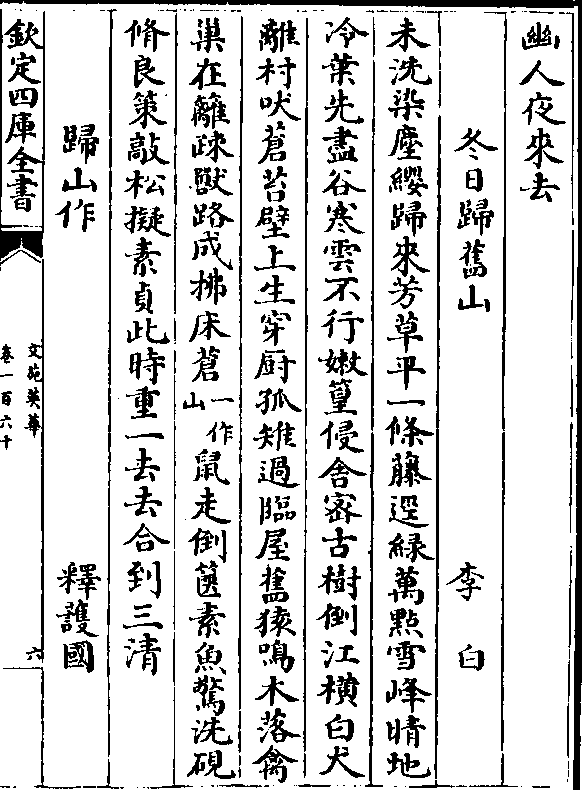 幽人夜來去
冬日歸舊山 李白
未洗染塵纓歸來芳草平一條藤逕緑萬㸃雪峰晴地
冷葉先盡谷寒雲不行嫩篁侵舎宻古樹倒江横白犬
離村吠蒼苔壁上生穿厨孤雉過臨屋舊猿鳴木落禽
巢在籬疎獸路成拂床蒼一作山鼠走倒篋素魚驚洗硯
脩良策敲松擬素貞此時重一去去合到三清
歸山作 釋護國
欽定四庫全書
文苑英華
卷一百六十
六